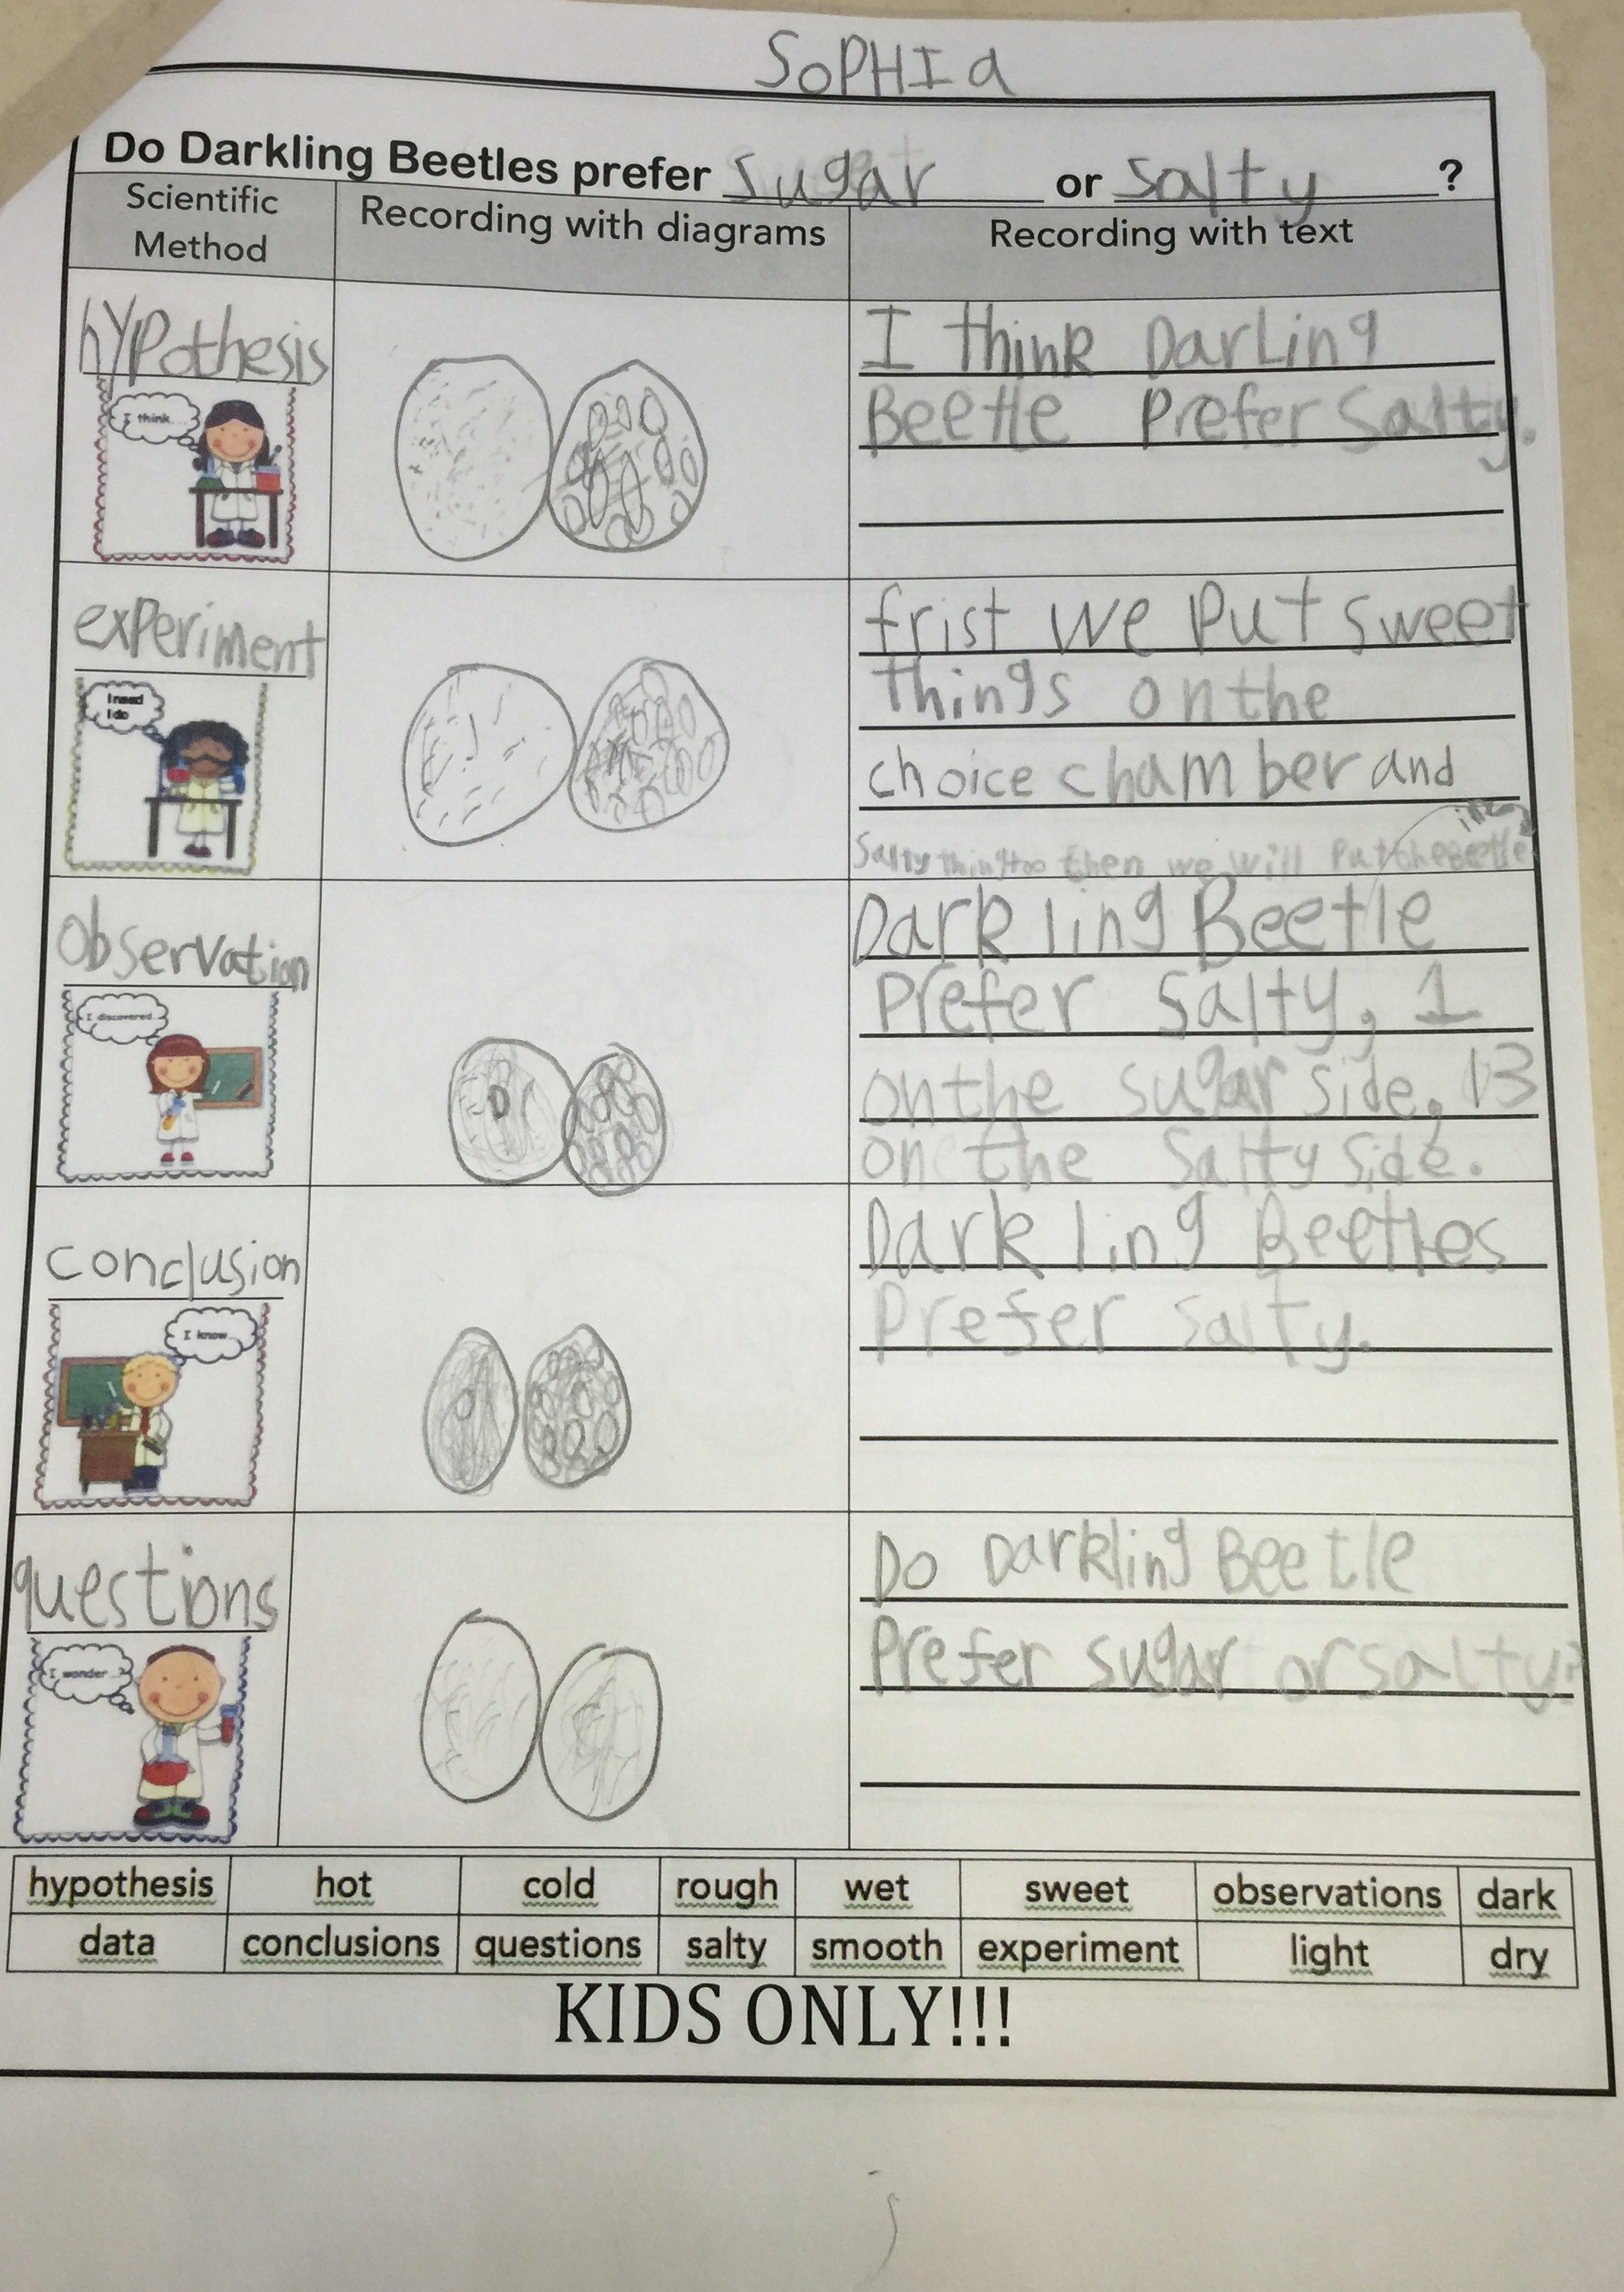 SoPHIa
Do Darkling Beetles prefer Sugar or Salty ?
Scientific Method
Recording with diagrams
Recording with text
hypothesis
I think...
I think Darling
Beetle Prefer Salty.
experiment
I need
I do
frist we Put sweet
things on the
choice chamber and
Salty things too then we will Put the Beetle in
observation
I discovered...
Darkling Beetle
Prefer Salty, 1
on the sugar side, 13
on the Salty side.
conclusion
I know...
Darkling Beetles
Prefer salty.
questions
I wonder...?
Do Darkling Beetle
Prefer sugar or salty?
hypothesis hot cold rough wet sweet observations dark
data conclusions questions salty smooth experiment light dry
KIDS ONLY!!!